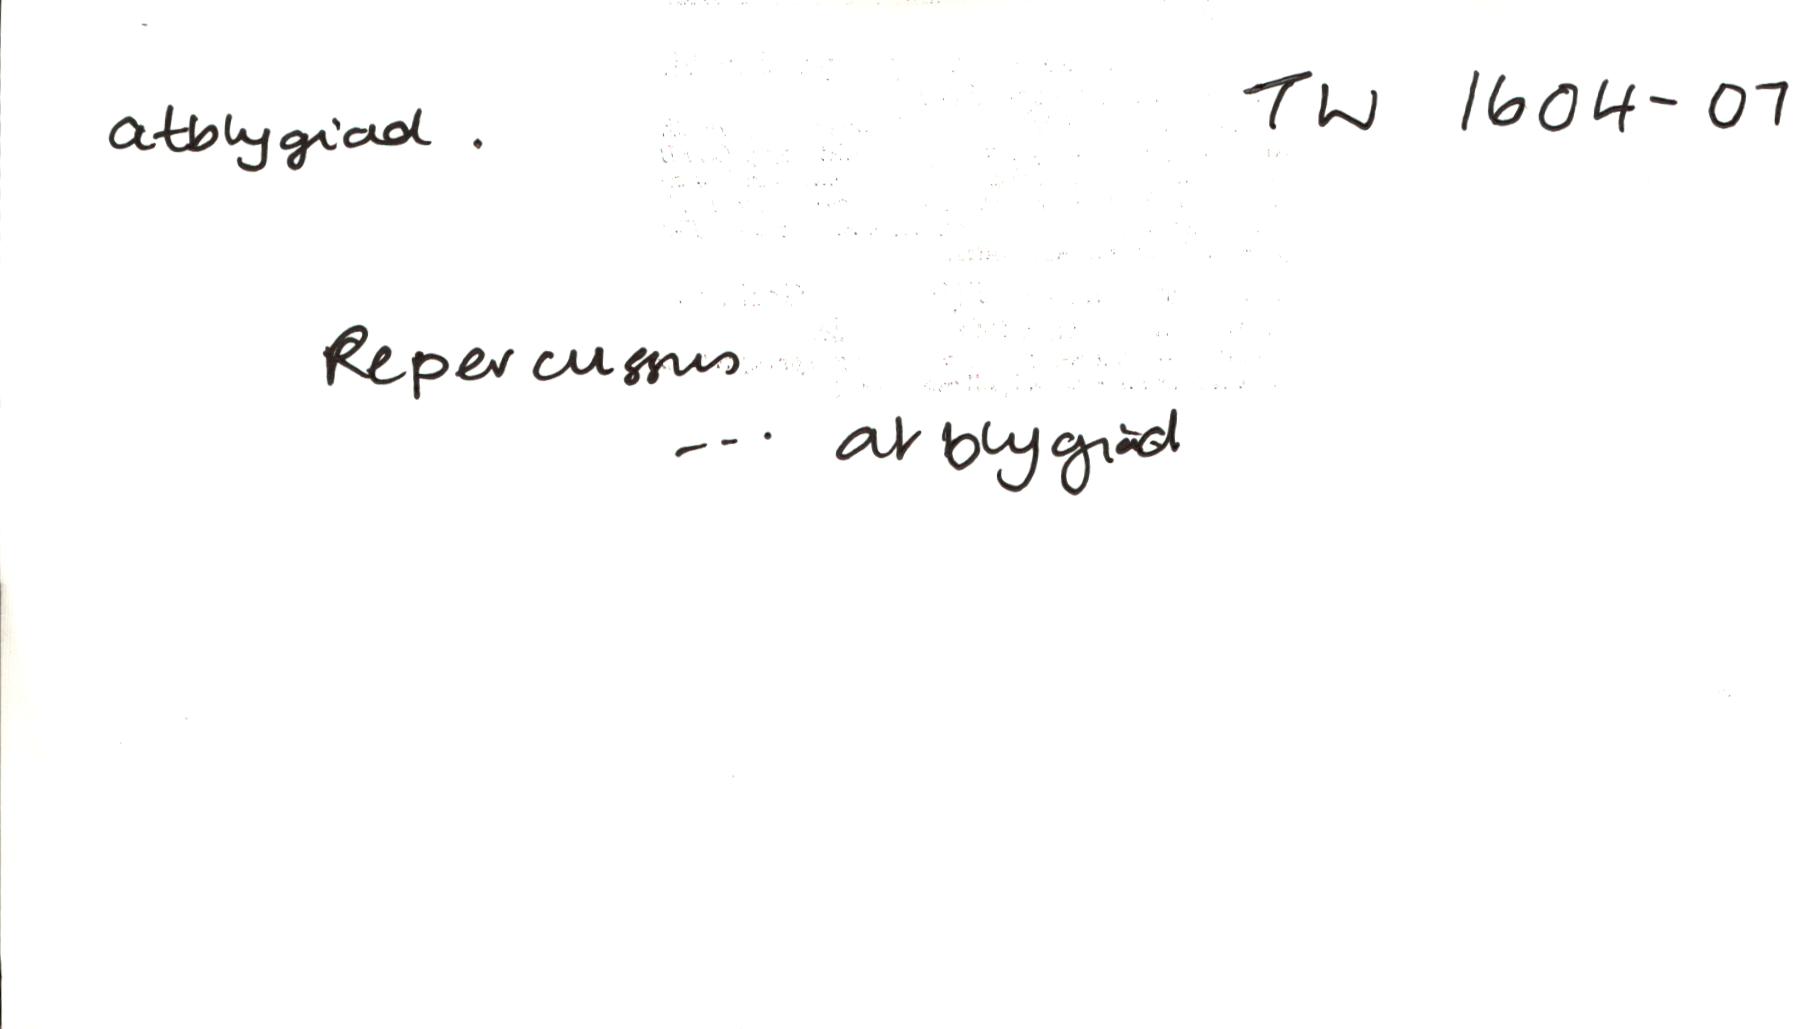 atblygiad . TW 1604-07
Repercussus
--- atblygiad